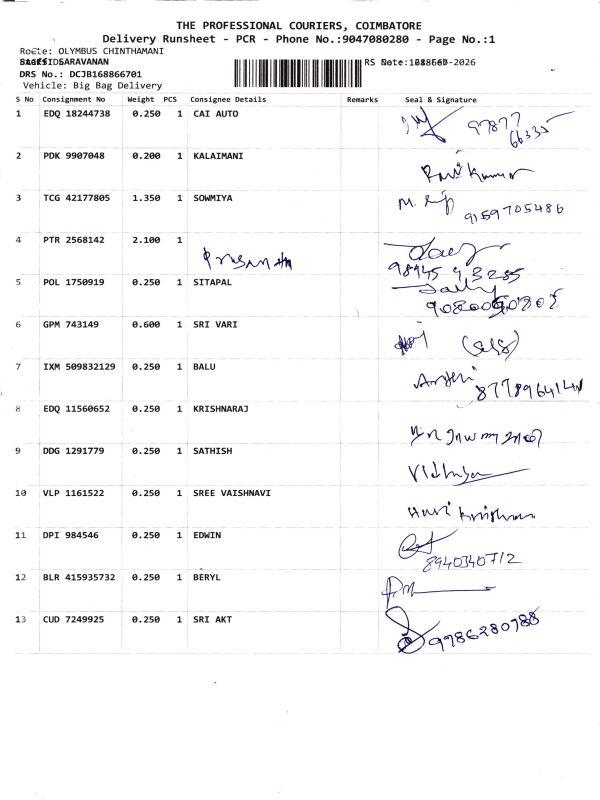 THE PROFESSIONAL COURIERS, COIMBATORE
Delivery Runsheet - PCR - Phone No.:9047080280 - Page No.:1
Route: OLYMBUS CHINTHAMANI
SARAVANAN RS Date: -2026
DRS No.: DCJB168866701
Vehicle: Big Bag Delivery
S No Consignment No Weight PCS Consignee Details Remarks Seal & Signature
1 EDQ 18244738 0.250 1 CAI AUTO 97877 66335
2 PDK 9907048 0.200 1 KALAIMANI Ravi Kumar
3 TCG 42177805 1.350 1 SOWMIYA M. 9159705486
4 PTR 2568142 2.100 1 Prasanth
5 POL 1750919 0.250 1 SITAPAL
6 GPM 743149 0.600 1 SRI VARI
7 IXM 509832129 0.250 1 BALU
8 EDQ 11560652 0.250 1 KRISHNARAJ
9 DDG 1291779 0.250 1 SATHISH Vidhya
10 VLP 1161522 0.250 1 SREE VAISHNAVI Hari Krishnan
11 DPI 984546 0.250 1 EDWIN 8940340712
12 BLR 415935732 0.250 1 BERYL
13 CUD 7249925 0.250 1 SRI AKT 9986280788